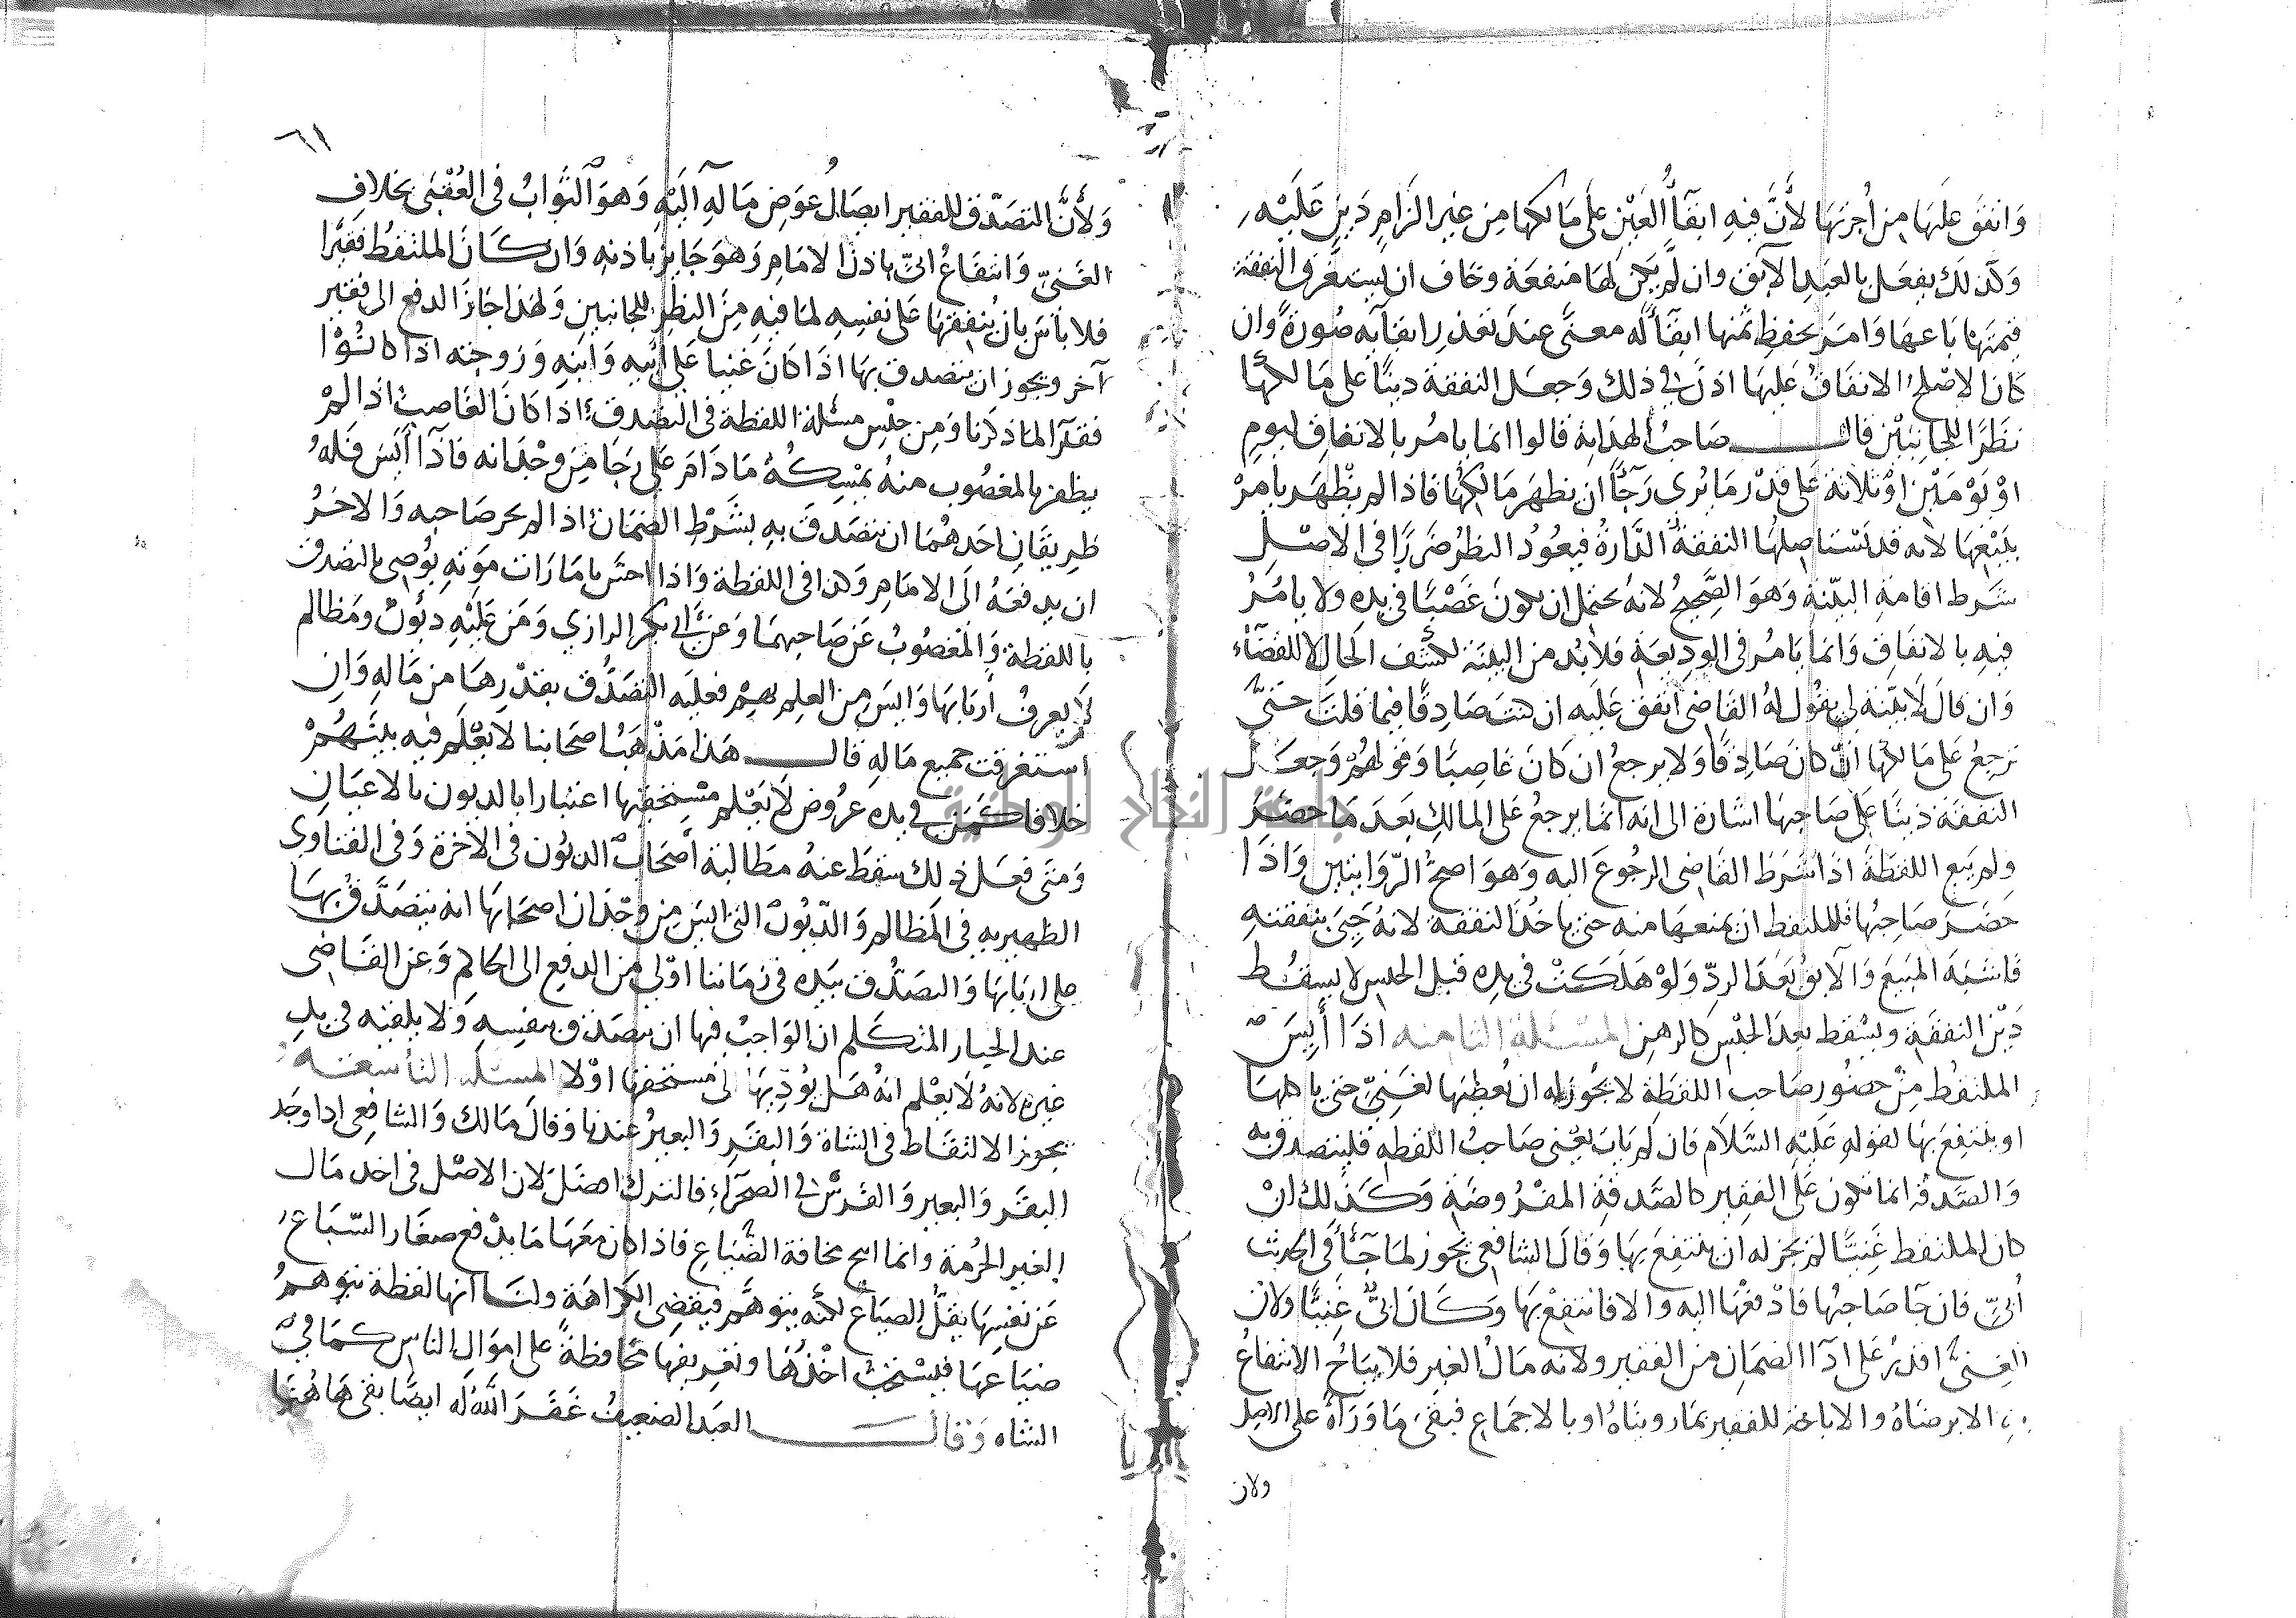 وانفق عليها من أجرتها لأن فيه ابقاء العين على مالكها من غير الزام دين عليه
وكذلك يفعل بالعبد الآبق وان لم يكن لها منفعة وخاف ان يستغرق النفقة
قيمتها باعها وامر بحفظ ثمنها ابقاء له معنى عند تعذر ابقائه صورة وان
كان الاصلح الانفاق عليها اذن في ذلك وجعل النفقة دينا على مالكها
نظرا للجانبين قال صاحب الهداية قالوا انما يامر بالانفاق ليوم
او يومين او ثلاثة على قدر ما يرى رجاء ان يظهر مالكها فاذا لم يظهر يامر
ببيعها لانه قد تستاصلها النفقة الدارة فيعود النظر ضررا في الاصل
شرط اقامة البينة وهو الصحيح لانه يحتمل ان يكون غصبا في يده ولا يامر
فيه بالانفاق وانما يامر في الوديعة فلا بد من البينة لكشف الحال لا للقضاء
وان قال لا بينة لي يقول له القاضي انفق عليه ان كنت صادقا فيما قلت حتى
ترجع على مالكها ان كان صادقا ولا يرجع ان كان غاصبا وقولهم وجعل
النفقة دينا على صاحبها اشارة الى انه انما يرجع على المالك بعد ما حضر
ولم يبع اللقطة اذا شرط القاضي الرجوع اليه وهو اصح الروايتين واذا
حضر صاحبها فللملتقط ان يمنعها منه حتى ياخذ النفقة لانه حيي بنفقته
فاشبه المبيع والآبق بعد الرد ولو هلكت في يده قبل الحبس لا يسقط
دين النفقة ويسقط بعد الحبس كالرهن المسئلة الثامنة اذا أيس
الملتقط من حضور صاحب اللقطة لا يجوز له ان يعطيها لغني حتى ياكلها
او ينتفع بها لقوله عليه السلام فان لم يات يعني صاحب اللقطه فليتصدق به
والصدقة انما تكون على الفقير كالصدقة المفروضة وكذلك ان
كان الملتقط غنيا لم يجز له ان ينتفع بها وقال الشافعي يجوز لما جاء في الحديث
أبي فان جا صاحبها فادفعها اليه والا فانتفع بها وكان ابي غنيا ولان
الغني اقدر على اداء الضمان من الفقير ولانه مال الغير فلا يباح الانتفاع
به الا برضاه والاباحة للفقير بما رويناه او بالاجماع فبقي ما وراه على الاصل
ولان
٦١
ولأن التصدق للفقير ايصال عوض ماله اليه وهو الثواب في العقبى بخلاف
الغني وانتفاع ابي باذن الامام وهو جايز باذنه وان كان الملتقط فقيرا
فلا بأس بان ينفقها على نفسه لما فيه من النظر للجانبين ولهذا جاز الدفع الى فقير
آخر ويجوز ان يتصدق بها اذا كان غنيا على ابيه وابنه وزوجته اذا كانوا
فقراء لما ذكرنا ومن جنس مسئلة اللقطة في التصدق اذا كان الغاصب اذا لم
يظفر بالمغصوب منه يمسكه ما دام على رجا من وجدانه فاذا أيس فله
طريقان احدهما ان يتصدق به بشرط الضمان اذا لم يجز صاحبه والاخر
ان يدفعه الى الامام وكذا في اللقطة واذا احتر بامارات موته يوصي بالتصدق
باللقطة والمغصوب عن صاحبهما وعن ابي بكر الرازي ومن عليه ديون ومظالم
لا يعرف أربابها وايس من العلم بهم فعليه التصدق بقدرها من ماله وان
استغرقت جميع ماله قال هذا مذهب اصحابنا لا يعلم فيه بينهم
خلافا كمن في يده عروض لا يعلم مستحقيها اعتبارا بالديون بالاعيان
ومتى فعل ذلك سقط عنه مطالبة أصحاب الديون في الاخرة وفي الفتاوي
الظهيريه في المظالم والديون التي ايس من وجدان اصحابها انه يتصدق بها
على اربابها والتصدق بيده في زماننا اولى من الدفع الى الحاكم وعن القاضي
عبد الجبار المتكلم ان الواجب فيها ان يتصدق بنفسه ولا يلقيه في يد
غيره لانه لا يعلم انه هل يؤديها الى مستحقها اولا المسئلة التاسعة
يجوز الالتقاط في الشاة والبقر والبعير عندنا وقال مالك والشافعي اذا وجد
البقر والبعير والفرس في الصحراء فالترك افضل لان الاصل في اخذ مال
الغير الحرمة وانما ابيح مخافة الضياع فاذا كان معها ما يدفع صغار السباع
عن نفسها يقل الضياع لكنه يتوهم فيقضى الكراهة ولنا أنها لقطة يتوهم
ضياعها فيستحب اخذها وتعريفها محافظة على اموال الناس كما في
الشاه وقال العبد الضعيف غفر الله له ايضا بقي هاهنا
جامعة النجاح الوطنية